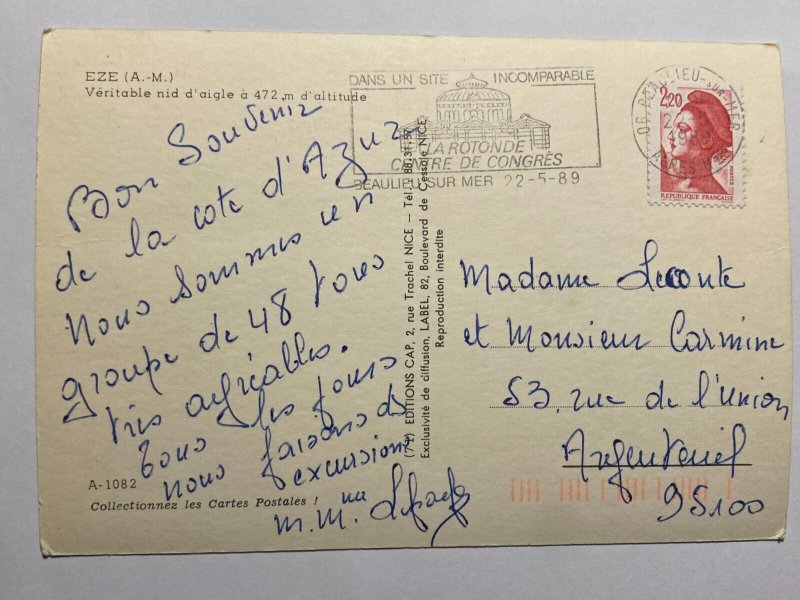 EZE (A.-M.)
Véritable nid d'aigle à 472 m d'altitude
Bon Souvenir
de la cote d'Azur
Nous sommes un
groupe de 48 tous
très agréables.
Tous les jours
nous faisons des
excursions
m. mme
A-1082
Collectionnez les Cartes Postales !
(7-1) EDITIONS CAP, 2, rue Trachel NICE — Tél. 88.31.57
Exclusivité de diffusion, LABEL, 82, Boulevard de Cessole NICE
Reproduction interdite
DANS UN SITE INCOMPARABLE
LA ROTONDE
CENTRE DE CONGRÈS
BEAULIEU SUR MER 22-5-89
06 BEAULIEU-sur-MER
2,20
POSTES
REPUBLIQUE FRANÇAISE
Madame Leconte
et Monsieur Carmine
53, rue de l'Union
Argenteuil
95100